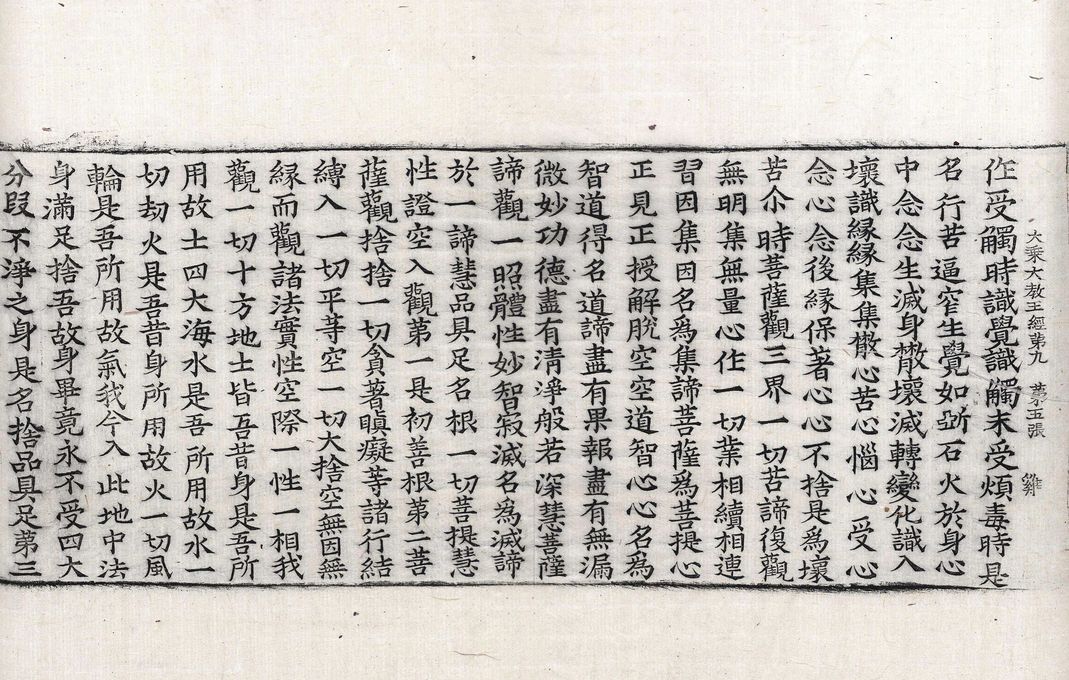 作受觸時識覺識觸未受煩毒時是
大乘大教王經第九 第五張 雞
名行苦逼窄生覺如斲石火於身心
中念念生滅身㪚壞滅轉變化識入
壞識緣緣集集㪚心苦心惱心受心
念心念後緣保著心心不捨是為壞
苦尒時菩薩觀三界一切苦諦復觀
無明集無量心作一切業相續相連
習因集因名為集諦菩薩為菩提心
正見正授解脫空空道智心心名為
智道得名道諦盡有果報盡有無漏
微妙功德盡有清淨般若深慧菩薩
諦觀一照體性妙智寂滅名為滅諦
於一諦慧品具足名根一切菩提慧
性證空入觀第一是初善根第二菩
薩觀捨捨一切貪著瞋癡等諸行結
縛入一切平等空一切大捨空無因無
緣而觀諸法實性空際一性一相我
觀一切十方地土皆吾昔身是吾所
用故土四大海水是吾所用故水一
切劫火是吾昔身所用故火一切風
輪是吾所用故氣我今入此地中法
身滿足捨吾故身畢竟永不受四大
分段不淨之身是名捨品具足第三